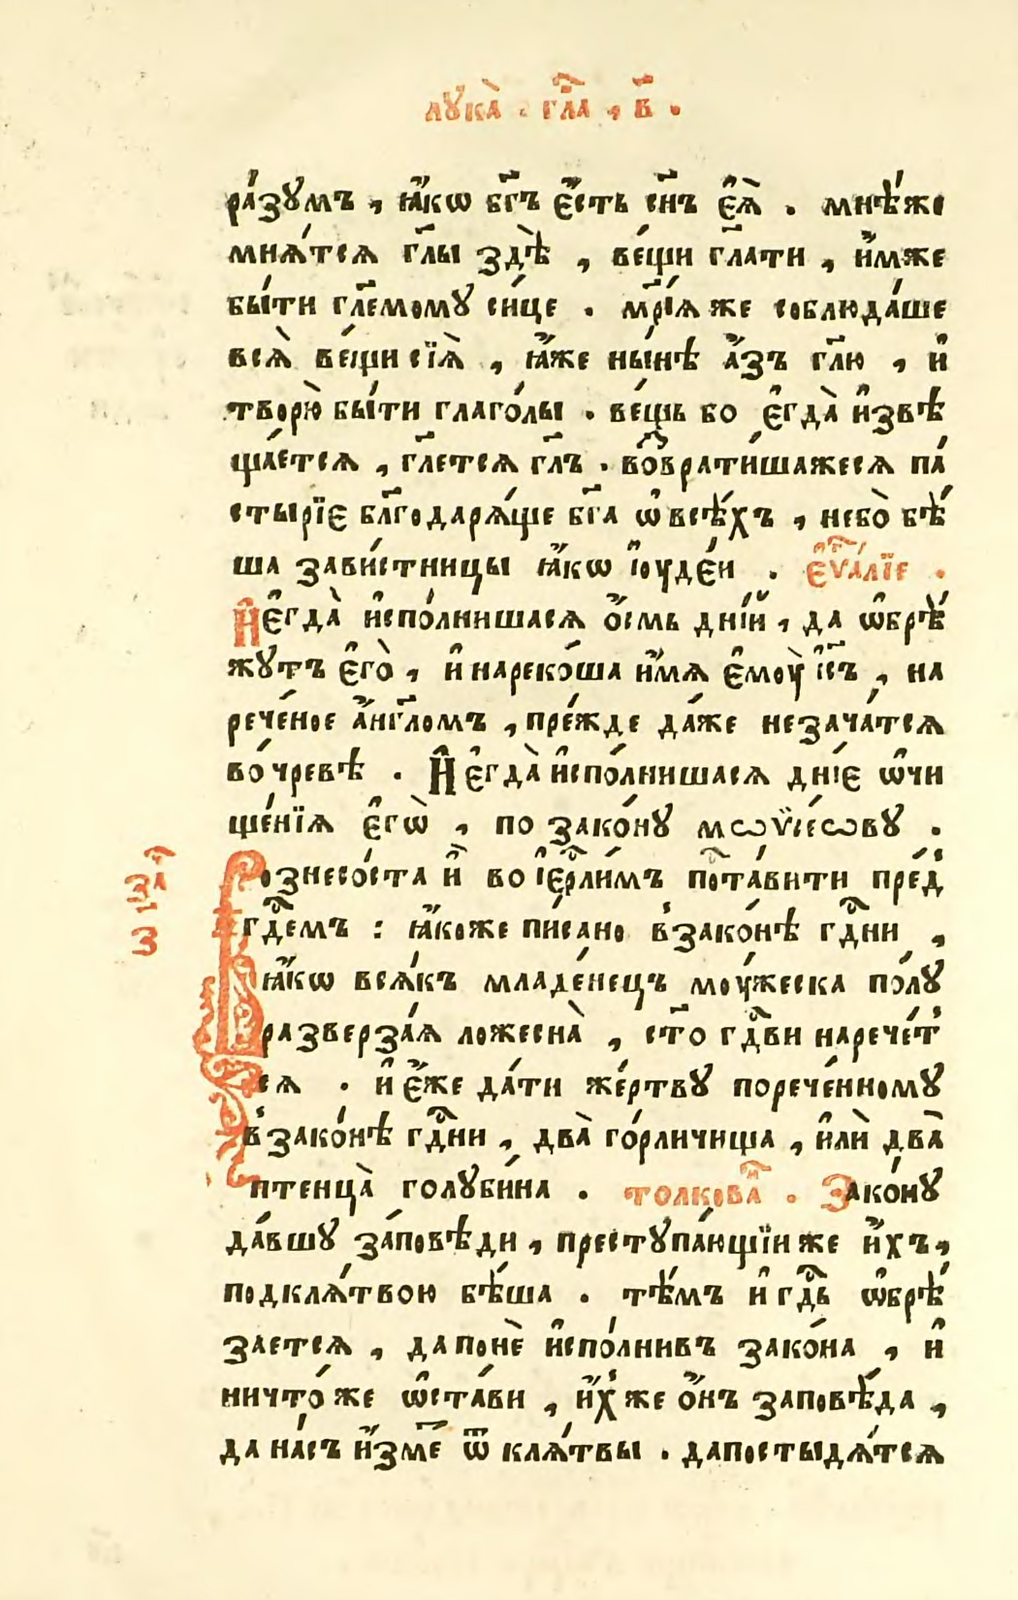 лꙋка̀ . гл҃а , в҃ .
ра́зꙋмъ , ꙗ҆́кѡ бг҃ъ є҆́сть сн҃ъ є҆ѧ̀ . мнѣ́же
мнѧ́тсѧ гл҃ы здѣ̀ , ве́щи гл҃ати , и҆́мже
бы́ти гл҃емомꙋ си́це . мр҃і́ѧ же соблюда́ше
всѧ̀ ве́щи сїѧ̀ , ꙗ҆́же ны́нѣ а҆́зъ гл҃ю , и҆
творю̀ бы́ти глаго́лы . ве́щь бо є҆гда̀ и҆звѣ
ща́етсѧ , гл҃етсѧ гл҃ъ . воⷥврати́шажесѧ па́
стырїє бл҃годарѧ́ще бг҃а ѡ҆всѣ́хъ , небо̀ бѣ́
ша зави́стницы ꙗ҆́кѡ і҆оуде́и . є҆ѵⷢ҇а́лїе .
И҆є҆гда̀ и҆спо́лнишасѧ о҆́смь дні́й , да ѡ҆брѣ́
жꙋтъ є҆го̀ , и҆ нареко́ша и҆́мѧ є҆моу̀ і҆с҃ъ , на
рече́ное а҆́нгг҃ломъ , пре́жде да́же незача́тсѧ
во́ чревѣ . И҆ є҆гда̀ и҆спо́лнишасѧ дні́є ѡ҆чи
ще́нїѧ є҆гѡ̀ , по зако́нꙋ мѡѵ̈се́ѡвꙋ .
заⷱ҇
з
Вознесо́ста и҆̀ во і҆ерⷭ҇ли́мъ поⷭ҇та́вити пред̾
гдⷭ҇емъ : ꙗ҆́коже пи́сано в̾зако́нѣ гдⷭ҇ни ,
ꙗ҆́кѡ всѧ́къ младе́нецъ моу́жеска по́лꙋ
разверза́ѧ ложесна̀ , ст҃о гдⷭ҇ви нарече́т̾
сѧ . и҆ є҆́же да́ти же́ртвꙋ порече́нномꙋ
в̾зако́нѣ гдⷭ҇ни , два̀ го́рличища , и҆лѝ два̀
птенца̀ голꙋби́на . толковаⷩ҇ . Зако́нꙋ
да́вшꙋ за́повѣди , престꙋпа́ющїи же и҆́хъ ,
подклѧ́твою бѣ́ша . тѣ́мъ и҆ гдⷭ҇ь ѡ҆брѣ́
зается , да понѐ и҆спо́лнивъ зако́на , и҆
ничто́ же ѡ҆ста́ви , и҆́х̾ же ѻ҆́нъ заповѣ́да ,
да на́съ и҆́змеⷮ ѿ клѧ́твы . дапостыдѧ́тсѧ